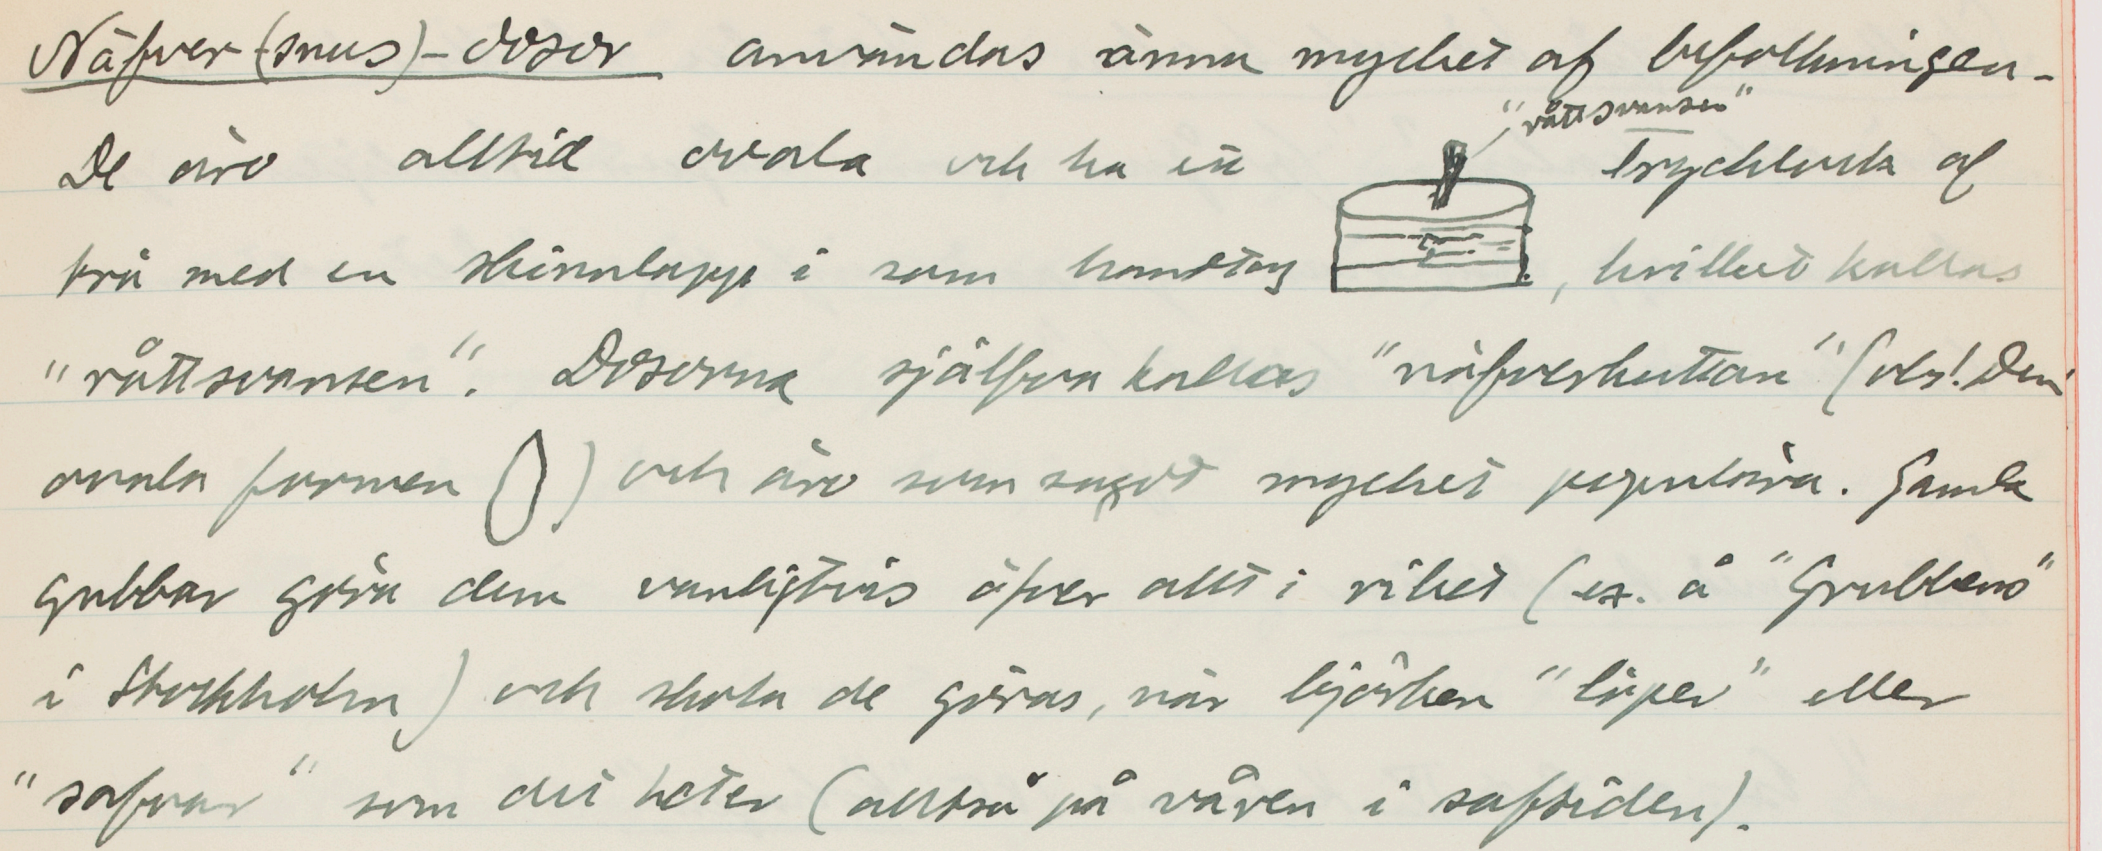 Näfver-(snus)-dosor användas ännu mycket af befolkningen-
"råttsvansen"
De äro alltid ovala och ha ett trycklock af
trä med en skinnlapp i som handtag, hvilket kallas
"råttsvansen". Dosorna själfva kallas "näfverkuttan" (obs! Den
ovala formen ) och äro som sagdt mycket populära. Gamla
gubbar göra dem vanligtvis öfver allt i riket (ex. å "Grubbens"
i Stockholm) och skola de göras, när björken "löper" eller
"safvar" som det heter (alltså på våren i saftiden).